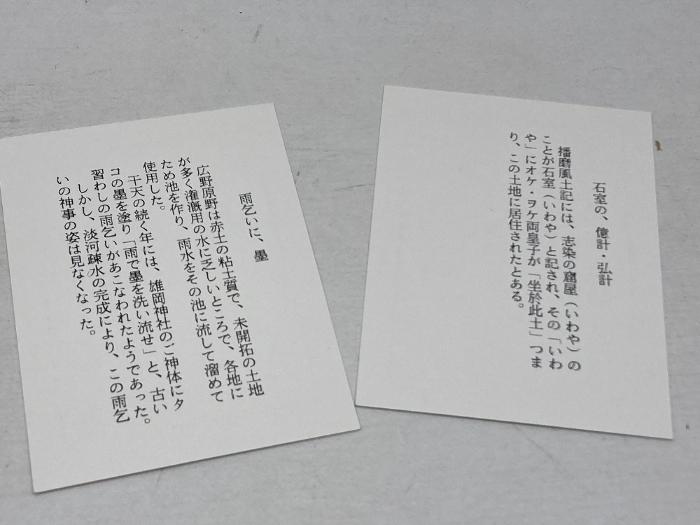 雨乞いに、墨
広野原野は赤土の粘土質で、未開拓の土地
が多く潅漑用の水に乏しいところで、各地に
ため池を作り、雨水をその池に流して溜めて
使用した。
干天の続く年には、雄岡神社のご神体にタ
コの墨を塗り「雨で墨を洗い流せ」と、古い
習わしの雨乞いがあこなわれたようであった。
しかし、淡河疎水の完成により、この雨乞
いの神事の姿は見なくなった。
石室の、億計・弘計
播磨風土記には、志染の窟屋（いわや）の
ことが石室（いわや）と記され、その「いわ
や」にオケ・ヲケ両皇子が「坐於此土」つま
り、この土地に居住されたとある。